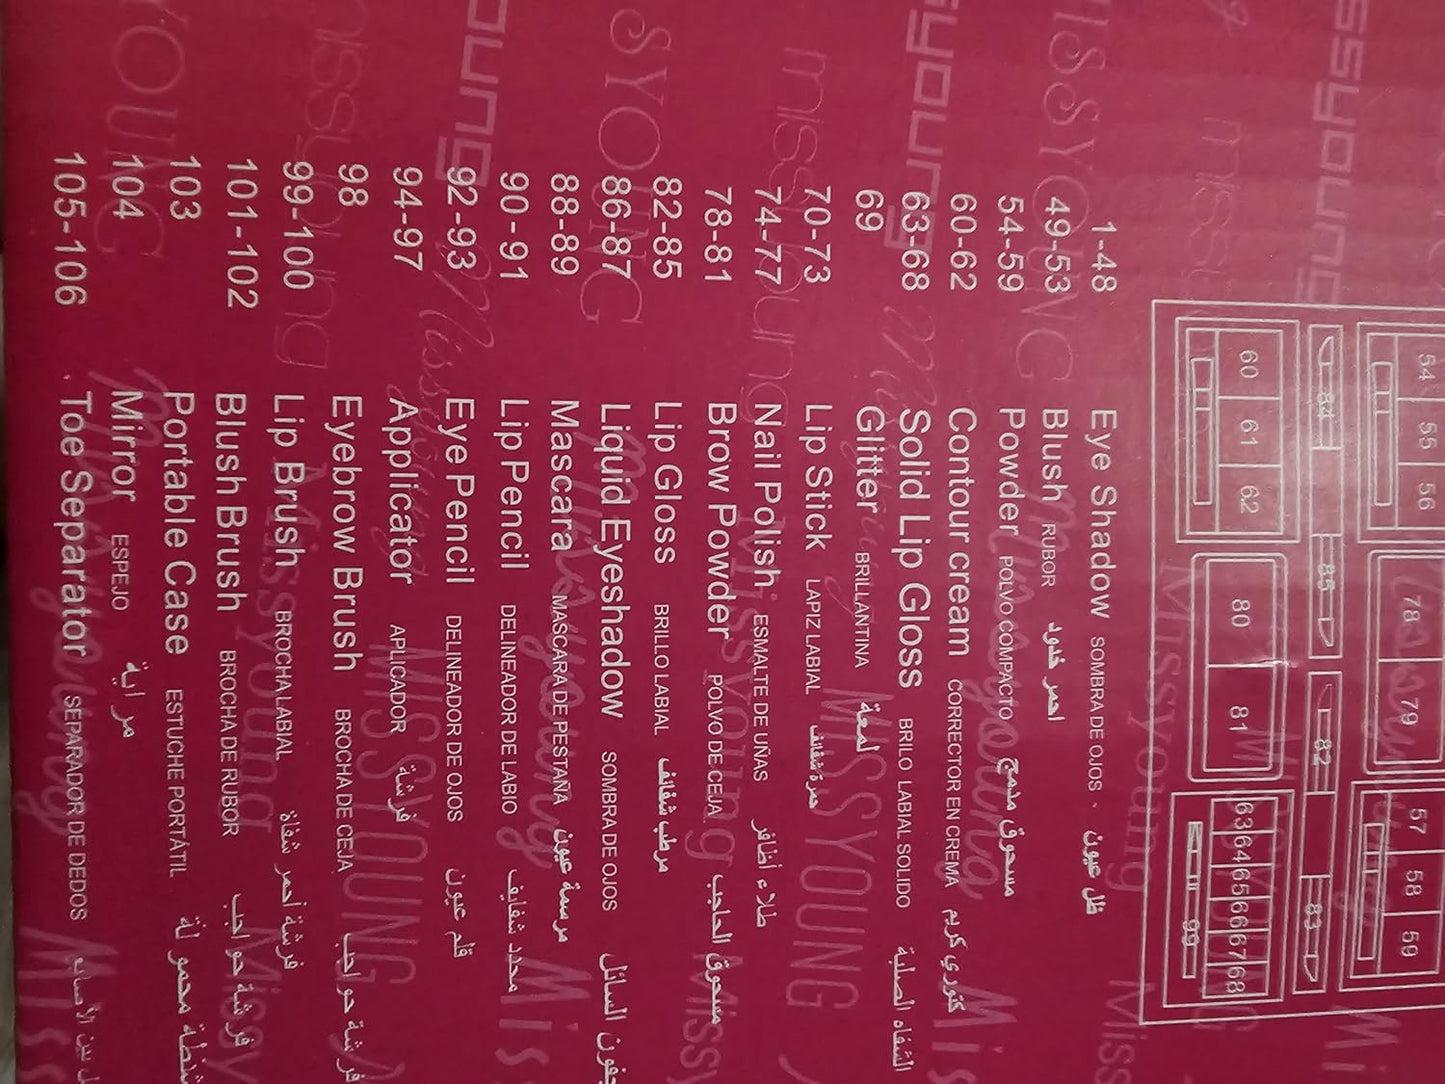 1-48 Eye Shadow SOMBRA DE OJOS ظل عيون
49-53 Blush RUBOR احمر خدود
54-59 Powder POLVO COMPACTO مسحوق مدمج
60-62 Contour cream CORRECTOR EN CREMA كنتوري كريم
63-68 Solid Lip Gloss BRILO LABIAL SOLIDO الشفاه الصلبة
69 Glitter BRILLANTINA لمعة
70-73 Lip Stick LAPIZ LABIAL حمرة شفائف
74-77 Nail Polish ESMALTE DE UÑAS طلاء أظافر
78-81 Brow Powder POLVO DE CEJA مسحوق الحاجب
82-85 Lip Gloss BRILLO LABIAL مرطب شفائف
86-87 Liquid Eyeshadow SOMBRA DE OJOS جفون السائل
88-89 Mascara MASCARA DE PESTAÑA مرسمة عيون
90-91 Lip Pencil DELINEADOR DE LABIO محدد شفايف
92-93 Eye Pencil DELINEADOR DE OJOS قلم عيون
94-97 Applicator APLICADOR فرشة
98 Eyebrow Brush BROCHA DE CEJA فرشة حواجب
99-100 Lip Brush BROCHA LABIAL فرشة أحمر شفاة
101-102 Blush Brush BROCHA DE RUBOR فرشة حواجب
103 Portable Case ESTUCHE PORTÁTIL شنطة محمولة
104 Mirror ESPEJO مراية
105-106 Toe Separator SEPARADOR DE DEDOS بين
54 55 56
78 79
57 58 59
84 85 82 83
60 61 62
80 81
63 64 65 66 67 68
99
missyoung
MISSYOUNG
Missyoung